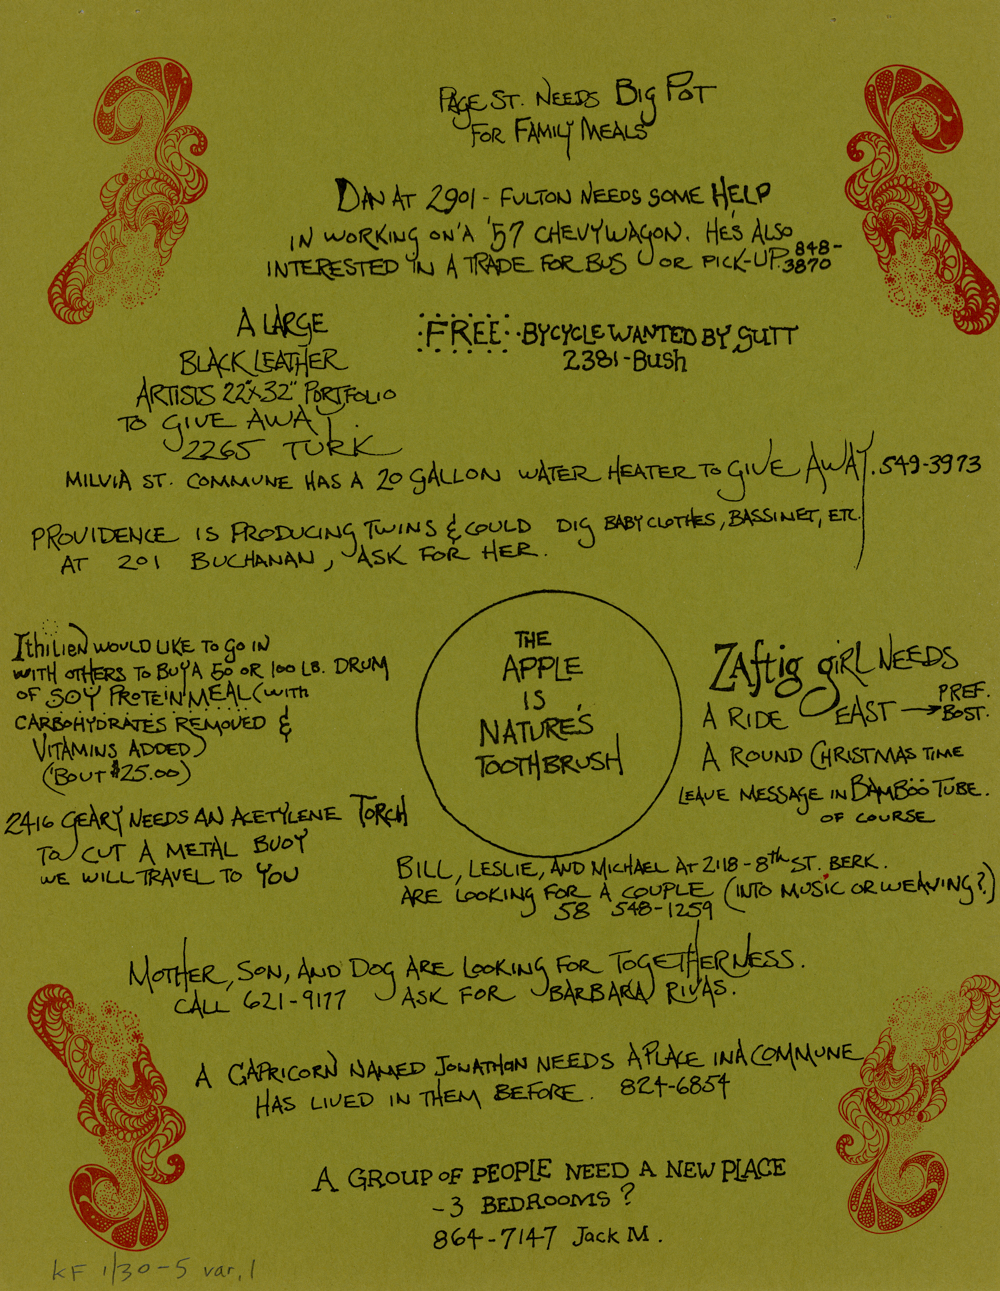 PAGE ST. NEEDS BIG POT
FOR FAMILY MEALS
DAN AT 2901 - FULTON NEEDS SOME HELP
IN WORKING ON A '57 CHEVY WAGON. HE'S ALSO
INTERESTED IN A TRADE FOR BUS OR PICK-UP. 848-
3870
A LARGE
BLACK LEATHER
ARTISTS 22"X32" PORTFOLIO
TO GIVE AWAY.
2265 TURK
FREE BYCYCLE WANTED BY SUTT
2381-BUSH
MILVIA ST. COMMUNE HAS A 20 GALLON WATER HEATER TO GIVE AWAY. 549-3973
PROVIDENCE IS PRODUCING TWINS & COULD DIG BABY CLOTHES, BASSINET, ETC.
AT 201 BUCHANAN, ASK FOR HER.
Ithilien WOULD LIKE TO GO IN
WITH OTHERS TO BUY A 50 OR 100 LB. DRUM
OF SOY PROTEIN MEAL (WITH
CARBOHYDRATES REMOVED &
VITAMINS ADDED)
('BOUT $25.00)
THE
APPLE
IS
NATURE'S
TOOTHBRUSH
ZAftig giRL NEEDS
A RIDE EAST → PREF.
BOST.
A ROUND CHRISTMAS TIME
LEAVE MESSAGE IN BAMBOO TUBE.
OF COURSE
2416 GEARY NEEDS AN ACETYLENE TORCH
TO CUT A METAL BUOY
WE WILL TRAVEL TO YOU
BILL, LESLIE, AND MICHAEL AT 2118 - 8th ST. BERK.
ARE LOOKING FOR A COUPLE (INTO MUSIC OR WEAVING?)
58 548-1259
MOTHER, SON, AND DOG ARE LOOKING FOR TOGETHERNESS.
CALL 621-9177 ASK FOR BARBARA RIVAS.
A CAPRICORN NAMED JONATHON NEEDS A PLACE IN A COMMUNE
HAS LIVED IN THEM BEFORE. 824-6854
A GROUP OF PEOPLE NEED A NEW PLACE
- 3 BEDROOMS?
864-7147 Jack M.
KF 1/30-5 var. 1